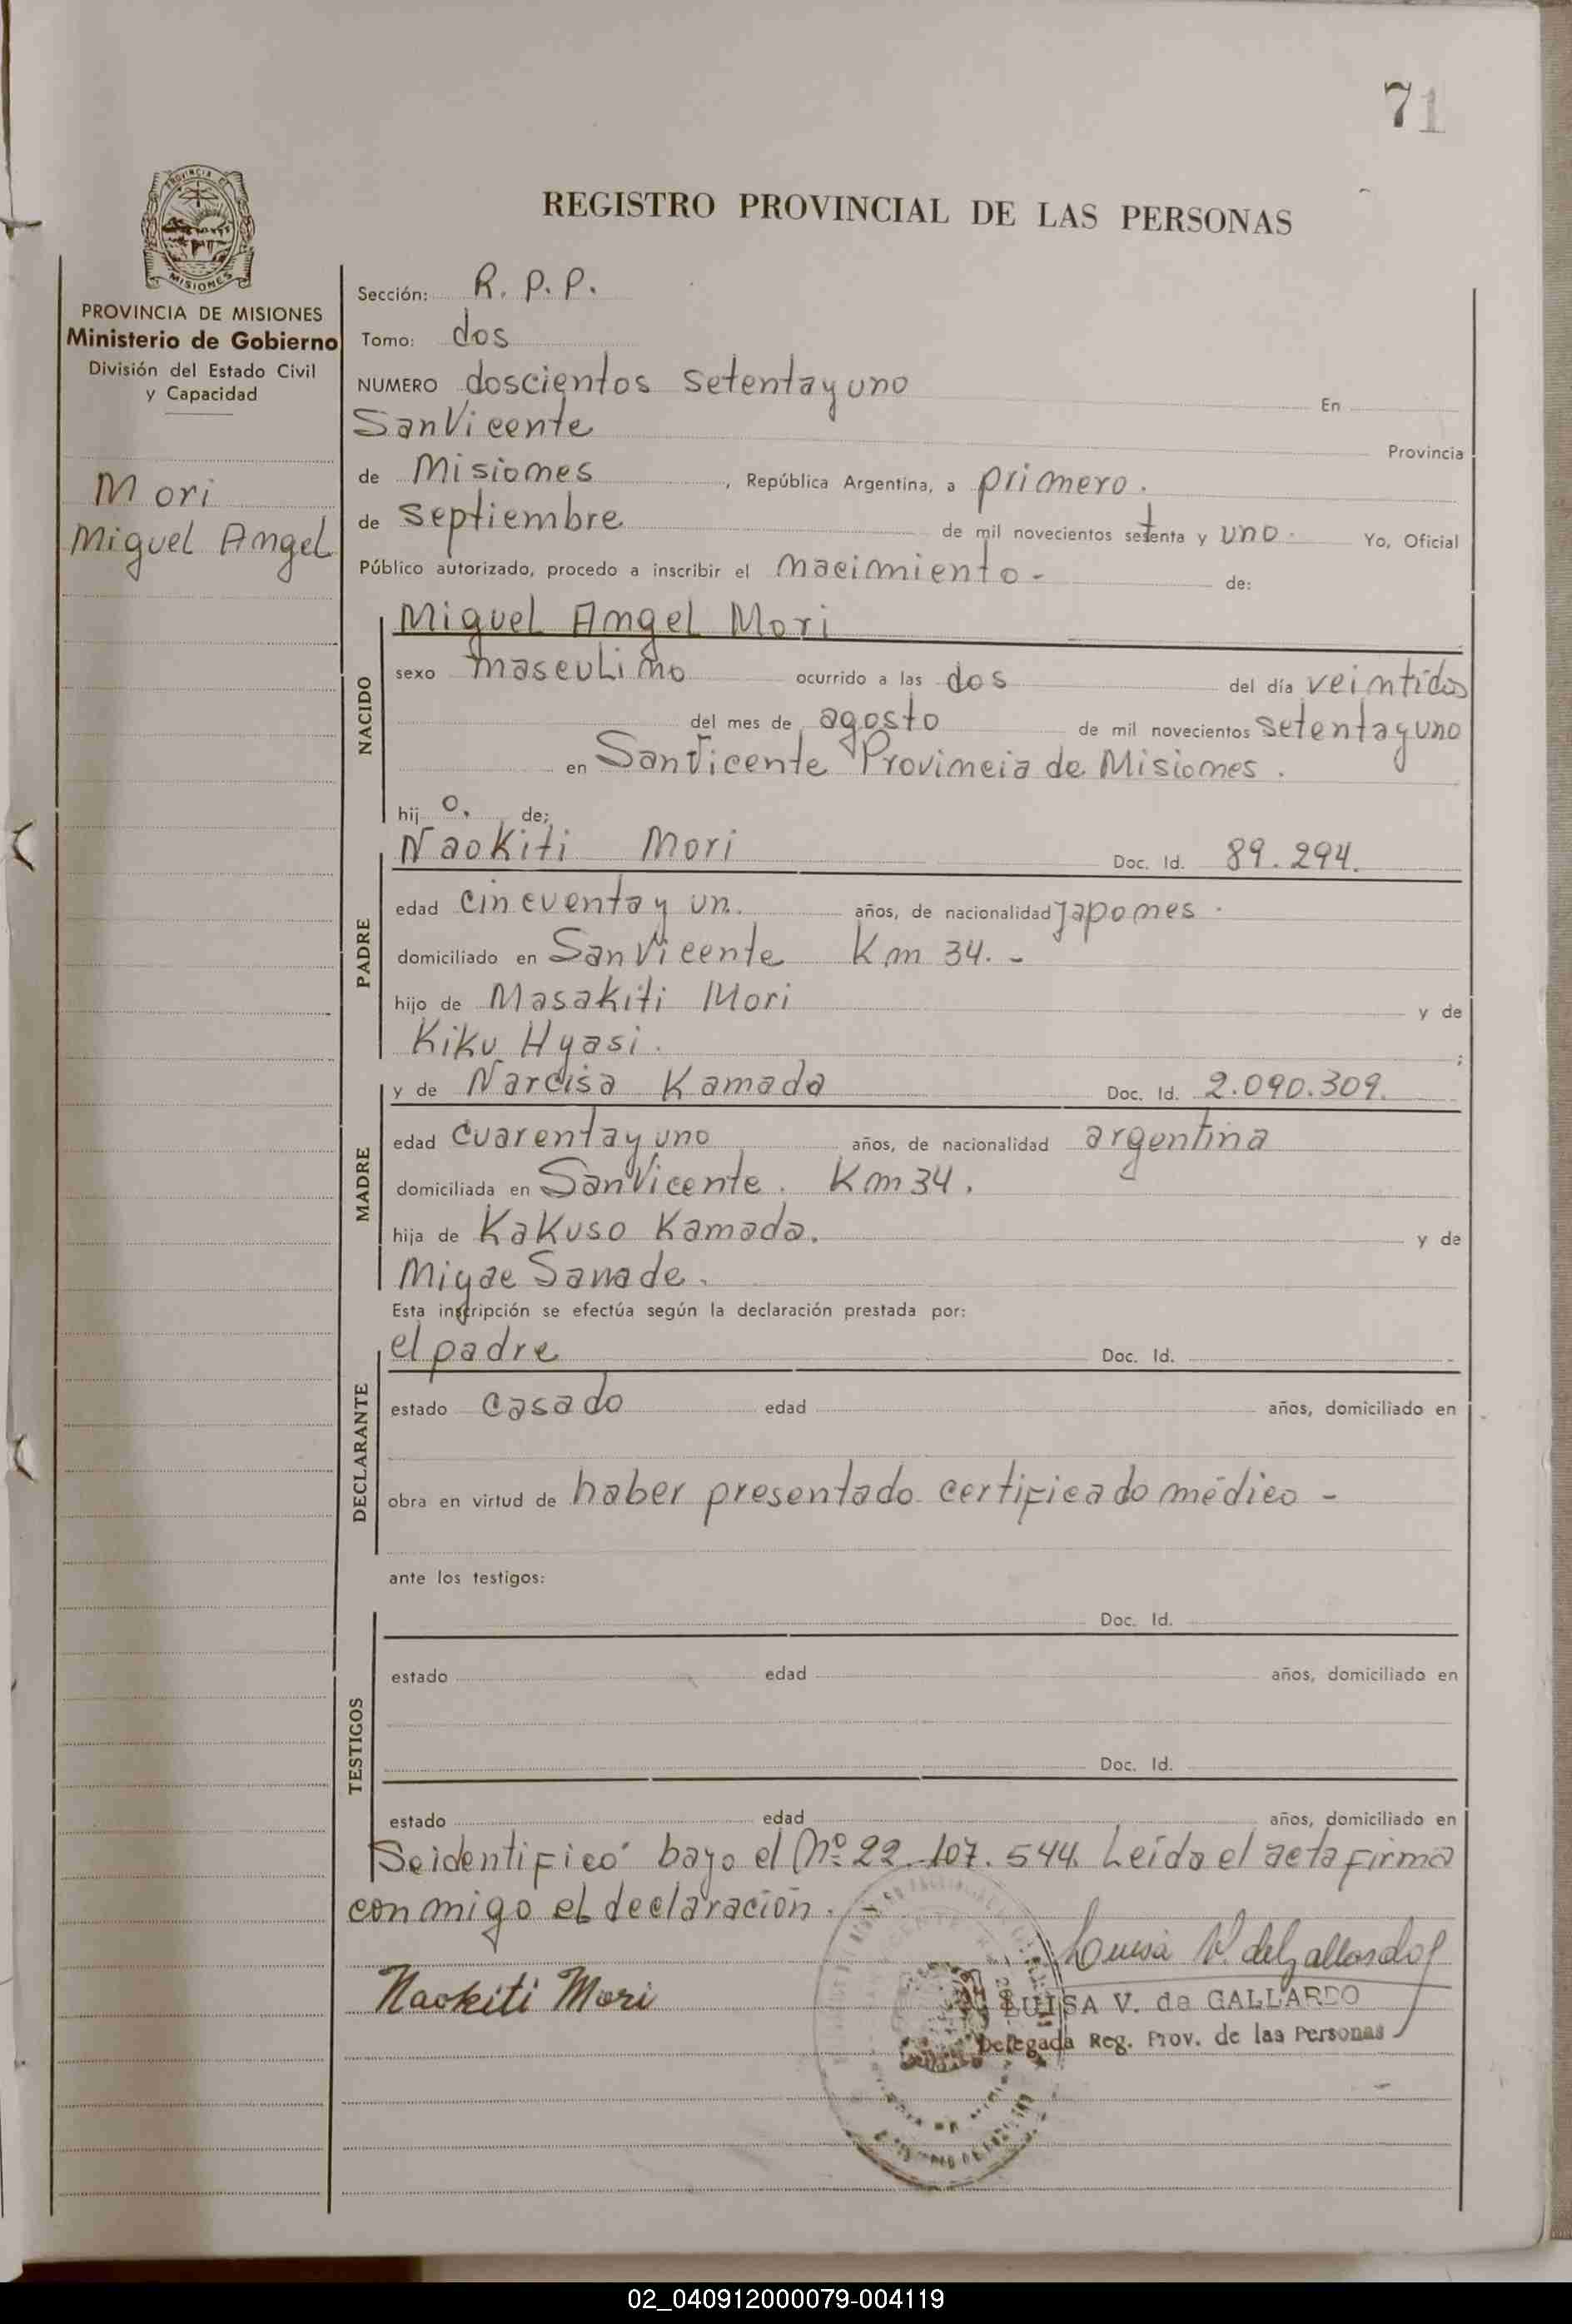 71
REGISTRO PROVINCIAL DE LAS PERSONAS
PROVINCIA DE
MISIONES
PROVINCIA DE MISIONES
Ministerio de Gobierno
División del Estado Civil
y Capacidad
Mori
Miguel Angel
Sección: R. P. P.
Tomo: dos
NUMERO doscientos setenta y uno En
San Vicente Provincia
de Misiones, República Argentina, a primero.
de septiembre de mil novecientos setenta y uno. Yo, Oficial
Público autorizado, procedo a inscribir el nacimiento - de:
NACIDO
Miguel Angel Mori
sexo masculino ocurrido a las dos del día veintidos
del mes de agosto de mil novecientos setenta y uno
en San Vicente Provincia de Misiones.
hij o. de;
PADRE
Naokiti Mori Doc. Id. 89.294.
edad cincuenta y un. años, de nacionalidad japones.
domiciliado en San Vicente Km 34. -
hijo de Masakiti Mori y de
Kiku Hyasi. ;
MADRE
y de Narcisa Kamada Doc. Id. 2.090.309.
edad cuarenta y uno años, de nacionalidad argentina
domiciliada en San Vicente. Km 34.
hija de Kakuso Kamada. y de
Miyae Sanade.
Esta inscripción se efectúa según la declaración prestada por:
DECLARANTE
el padre Doc. Id.
estado casado edad años, domiciliado en
obra en virtud de haber presentado certificado médico -
ante los testigos:
TESTIGOS
Doc. Id.
estado edad años, domiciliado en
Doc. Id.
estado edad años, domiciliado en
Se identificó bajo el Nº 22.107.544. Leída el acta firma
conmigo el declaración. -
Luisa V. de Gallardo
Naokiti Mori
LUISA V. de GALLARDO
Delegada Reg. Prov. de las Personas
02_040912000079-004119